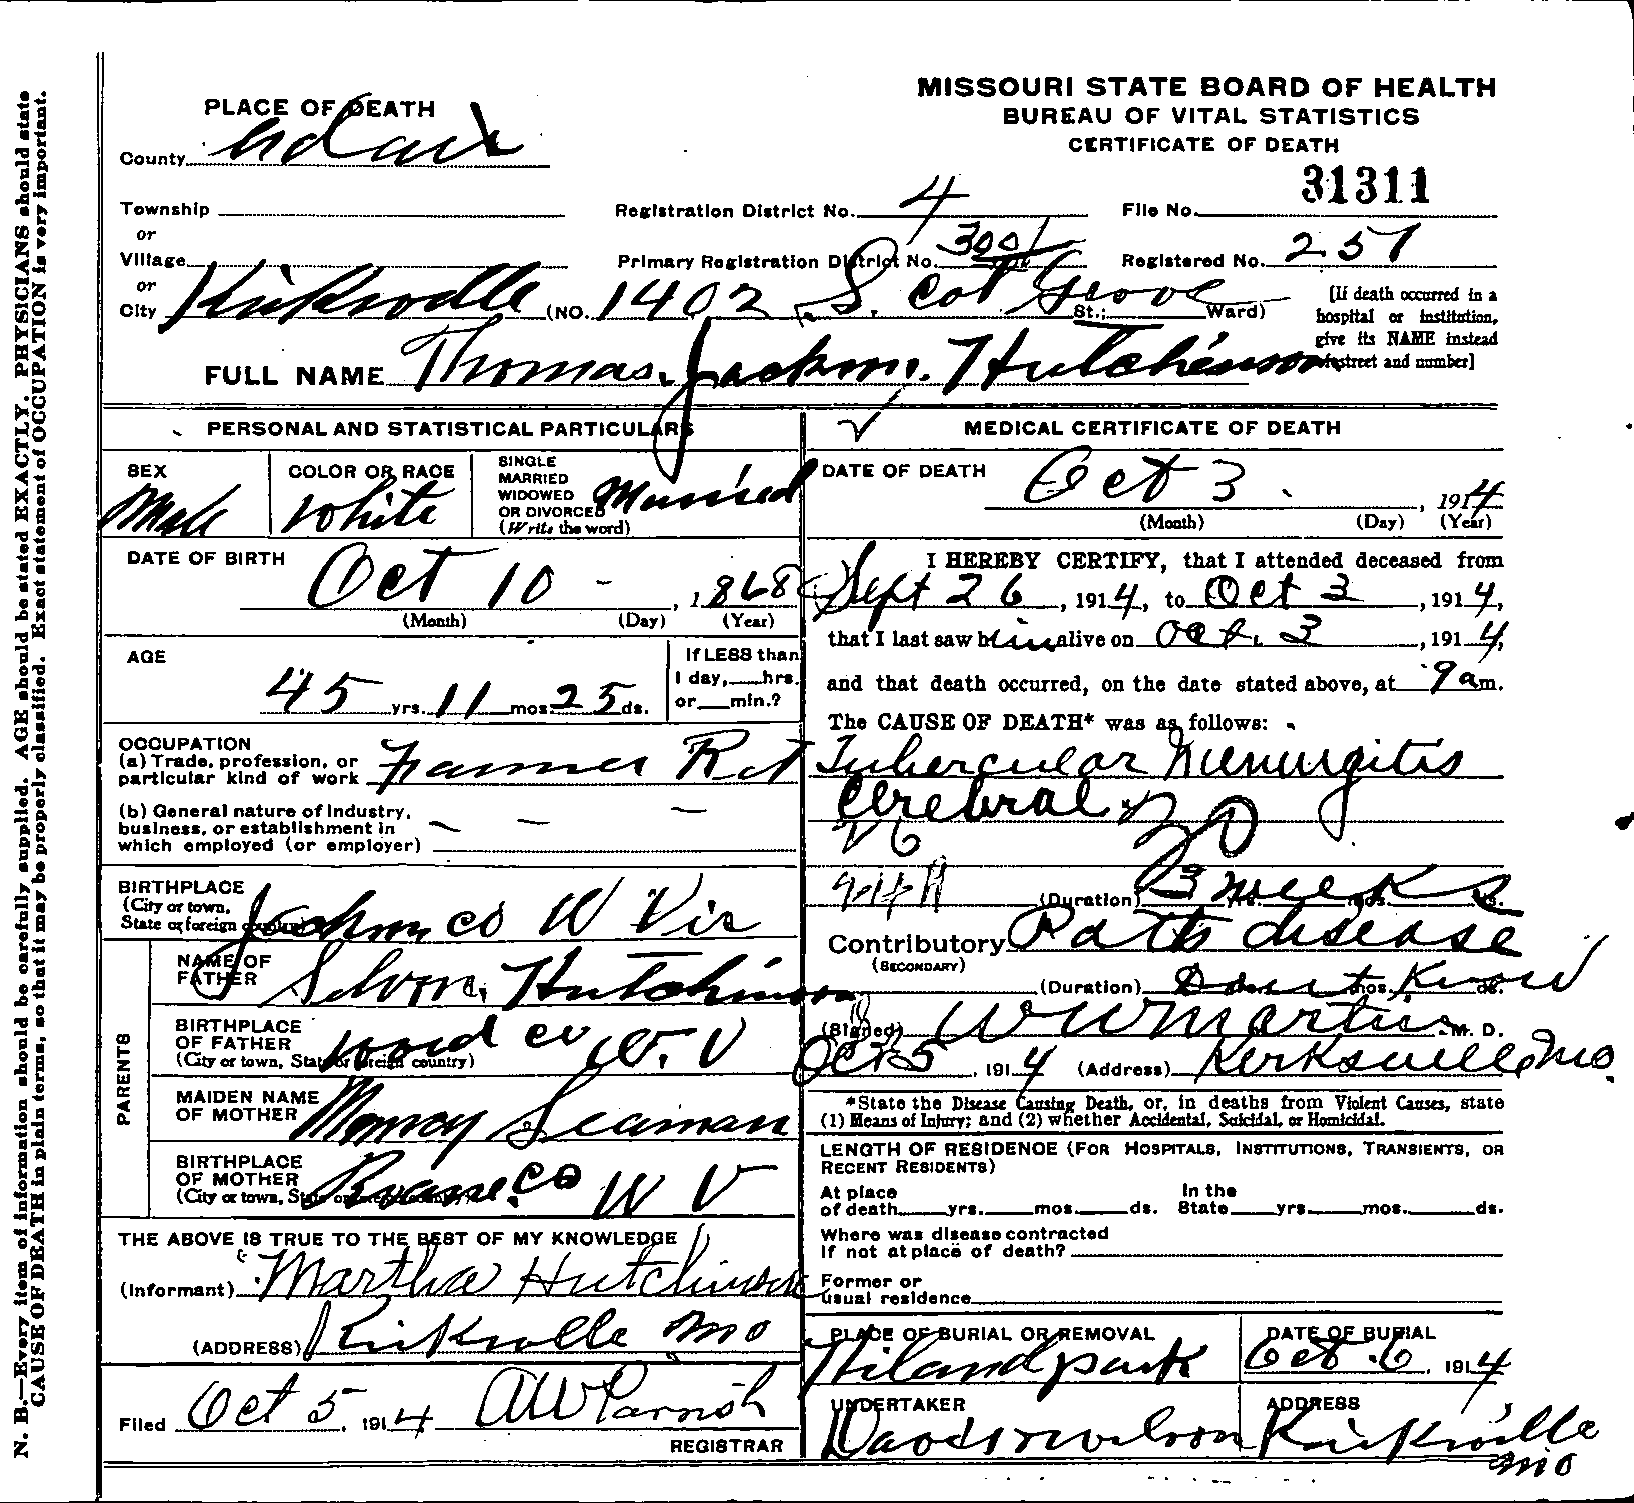 MISSOURI STATE BOARD OF HEALTH
BUREAU OF VITAL STATISTICS
CERTIFICATE OF DEATH
PLACE OF DEATH
County Adair
31311
Township
Registration District No. 4
File No.
or
Village
Primary Registration District No. 3001
Registered No. 257
or
City Kirksville (NO. 1402 S. Cot Grove St.; Ward)
[If death occurred in a hospital or institution, give its NAME instead of street and number]
FULL NAME Thomas Jackson Hutchinson
PERSONAL AND STATISTICAL PARTICULARS
SEX
Male
COLOR OR RACE
White
SINGLE
MARRIED
WIDOWED
OR DIVORCED
(Write the word)
Married
DATE OF BIRTH
Oct 10 - , 1868
(Month) (Day) (Year)
AGE
45 yrs. 11 mos. 25 ds.
If LESS than
1 day, hrs.
or min.?
OCCUPATION
(a) Trade, profession, or
particular kind of work Farmer Ret
(b) General nature of industry,
business, or establishment in
which employed (or employer)
BIRTHPLACE
(City or town,
State or foreign country) Jackson co W Vir
PARENTS
NAME OF
FATHER Hutchinson
BIRTHPLACE
OF FATHER
(City or town, State or foreign country) Wood co W. V
MAIDEN NAME
OF MOTHER Seaman
BIRTHPLACE
OF MOTHER
(City or town, State or foreign country) Roane co W V
THE ABOVE IS TRUE TO THE BEST OF MY KNOWLEDGE
(Informant) Martha Hutchinson
(ADDRESS) Kirksville Mo
Filed Oct 5, 1914 AW Parrish
REGISTRAR
MEDICAL CERTIFICATE OF DEATH
DATE OF DEATH
Oct 3. , 1914
(Month) (Day) (Year)
I HEREBY CERTIFY, that I attended deceased from
Sept 26, 1914, to Oct 3, 1914,
that I last saw him alive on Oct. 3, 1914,
and that death occurred, on the date stated above, at 9 am.
The CAUSE OF DEATH* was as follows:
Tubercular Meningitis
Cerebral 30
(Duration) 3 weeks yrs. mos. ds.
Contributory Potts disease
(SECONDARY)
(Duration) Dont Know yrs. mos. ds.
(Signed) Martin M. D.
Oct 5, 1914 (Address) Kirksville Mo.
*State the Disease Causing Death, or, in deaths from Violent Causes, state
(1) Means of Injury; and (2) whether Accidental, Suicidal, or Homicidal.
LENGTH OF RESIDENCE (FOR HOSPITALS, INSTITUTIONS, TRANSIENTS, OR
RECENT RESIDENTS)
At place
of death yrs. mos. ds.
In the
State yrs. mos. ds.
Where was disease contracted
If not at place of death?
Former or
usual residence
PLACE OF BURIAL OR REMOVAL
Hiland park
DATE OF BURIAL
Oct. 6, 1914
UNDERTAKER
ADDRESS
Kirksville
Mo
N. B.—Every item of information should be carefully supplied. AGE should be stated EXACTLY. PHYSICIANS should state
CAUSE OF DEATH in plain terms, so that it may be properly classified. Exact statement of OCCUPATION is very important.